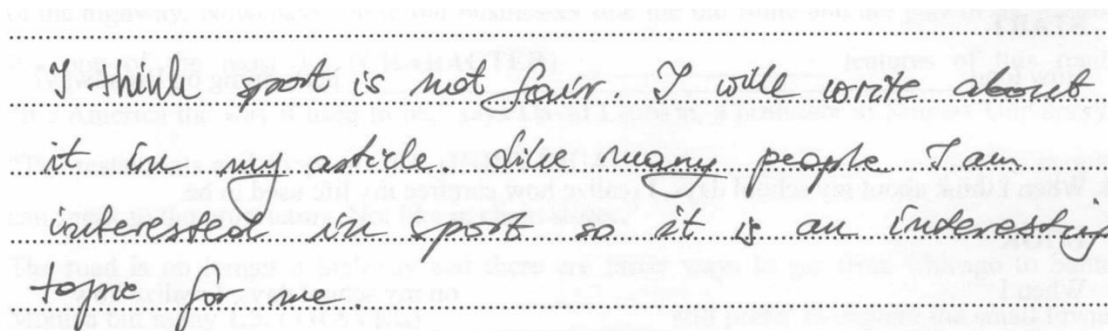 I think sport is not fair. I will write about
it in my article. Like many people I am
interested in sport so it is an interestin
topic for me